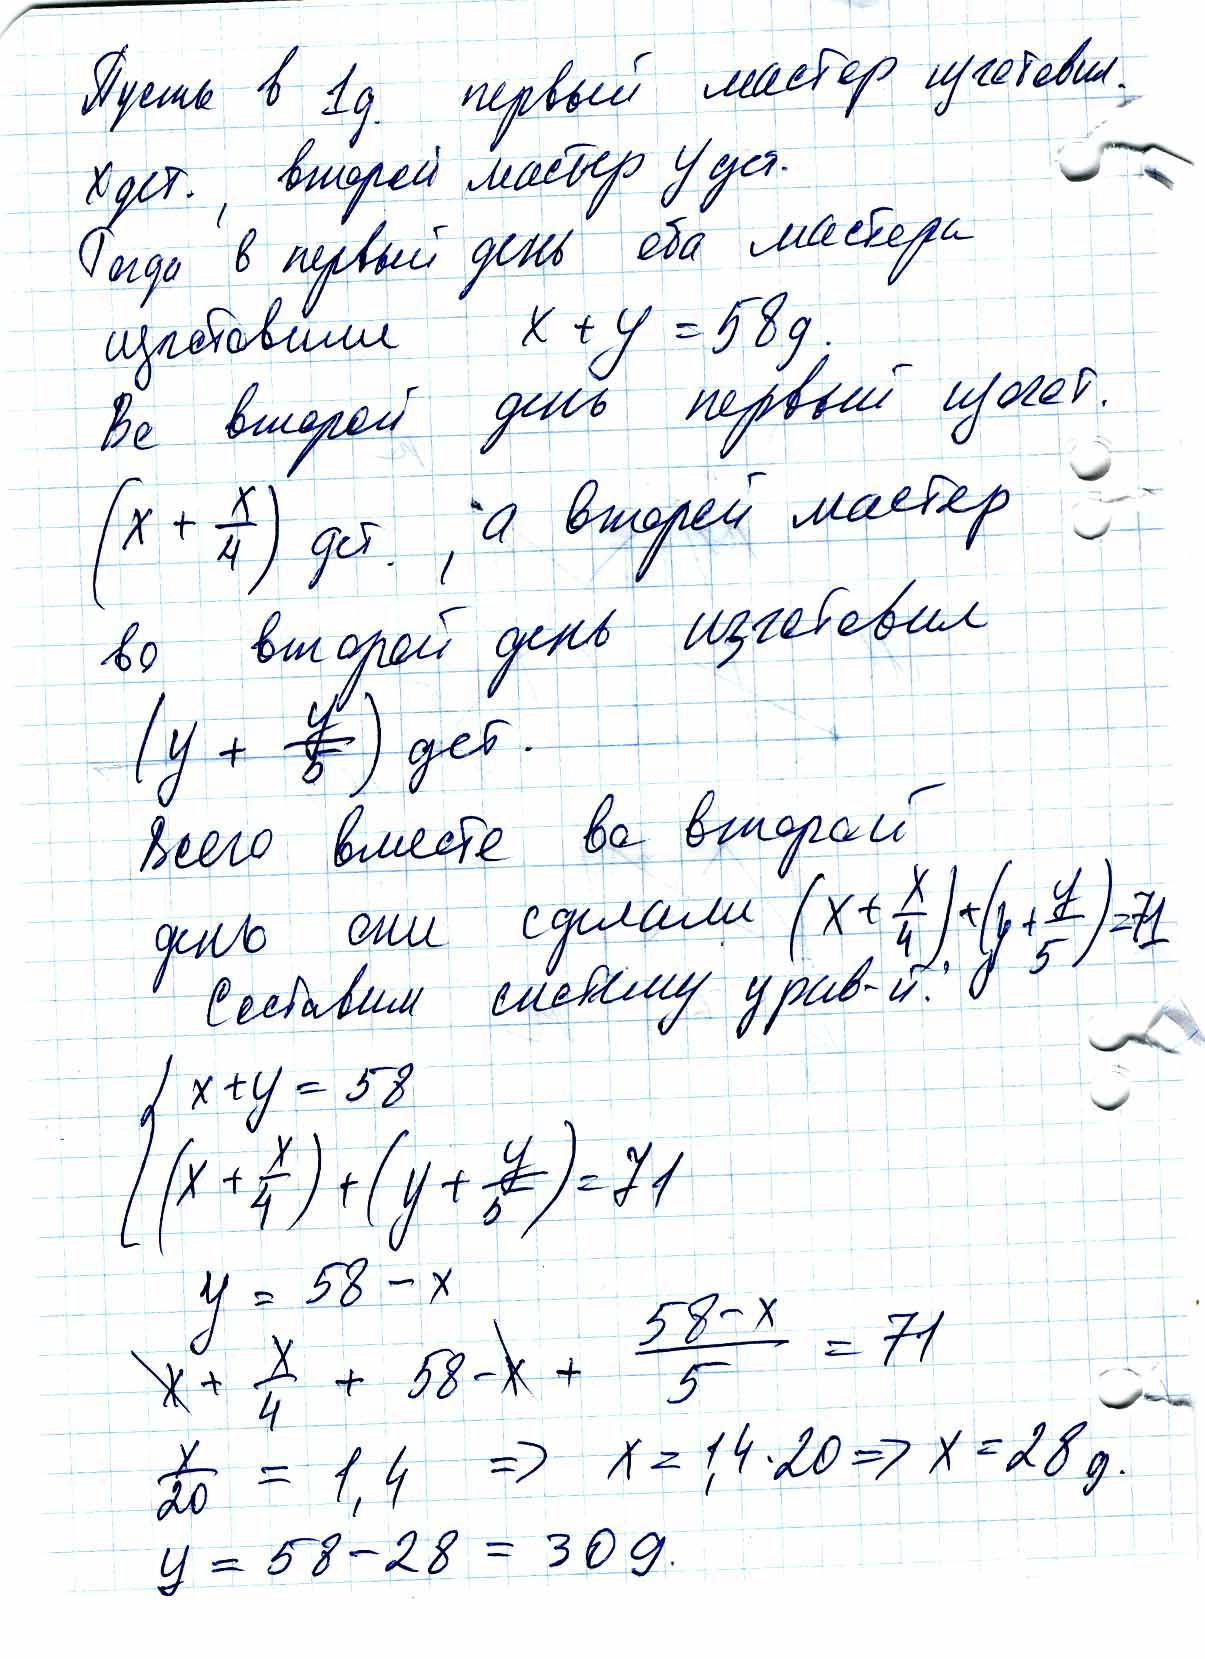 Пусть в 1д. первый мастер изготовил.
x дет., второй мастер y дет.
Тогда в первый день оба мастера
изготовили x + y = 58 д.
Во второй день первый изгот.
(x + x/4) дет., а второй мастер
во второй день изготовил
(y + y/5) дет.
Всего вместе во второй
день они сделали (x + x/4) + (y + y/5) = 71
Составим систему урав-й:
x + y = 58
(x + x/4) + (y + y/5) = 71
y = 58 - x
x + x/4 + 58 - x + (58 - x)/5 = 71
x/20 = 1,4 => x = 1,4 · 20 => x = 28 д.
y = 58 - 28 = 30 д.